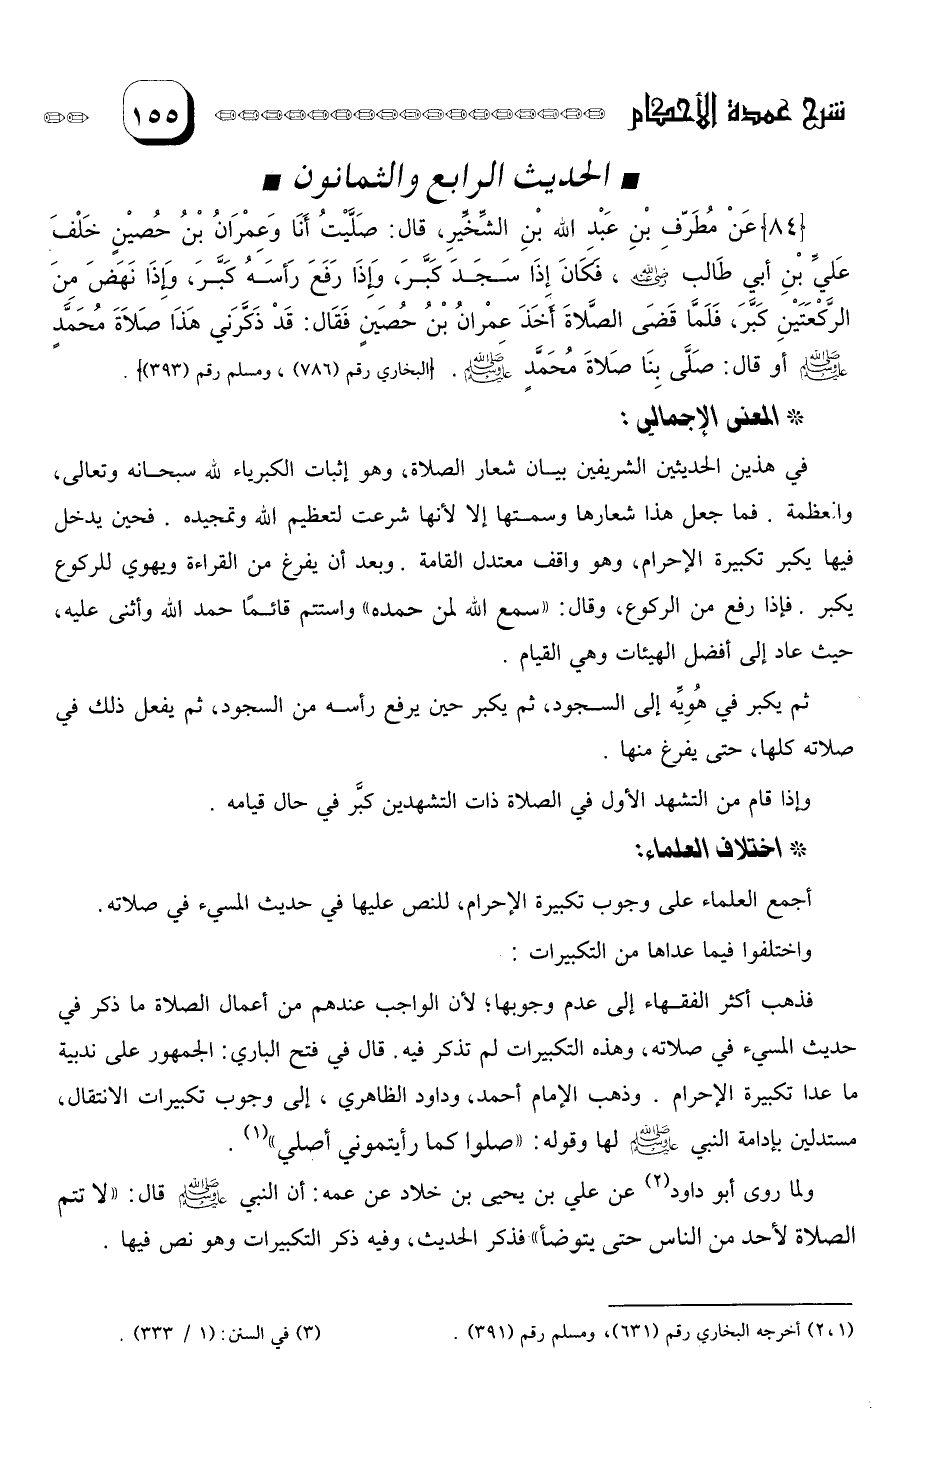 شرح عمدة الأحكام ١٥٥
■ الحديث الرابع والثمانون ■
{٨٤} عَنْ مُطَرِّفِ بْنِ عَبْدِ الله بْنِ الشِّخِّيرِ، قال: صَلَّيْتُ أَنَا وَعِمْرَانُ بْنُ حُصَيْنٍ خَلْفَ
عَلَيِّ بْنِ أبي طَالب ﵁ ، فَكَانَ إِذَا سَجَدَ كَبَّرَ، وَإِذَا رَفَعَ رَأسَهُ كَبَّرَ، وَإِذَا نَهَضَ مِنَ
الرَّكْعَتَيْنِ كَبَّرَ، فَلَمَّا قَضَى الصَّلاةَ أَخَذَ عِمْرانُ بنُ حُصَينٍ فَقَالَ: قَدْ ذَكَّرَني هَذَا صَلاَةَ مُحَمَّدٍ
ﷺ أو قال: صَلَّى بِنَا صَلاةَ مُحَمَّدٍ ﷺ . {البخاري رقم (٧٨٦) ، ومسلم رقم (٣٩٣)} .
* المعنى الإجمالي :
في هذين الحديثين الشريفين بيان شعار الصلاة، وهو إثبات الكبرياء لله سبحانه وتعالى،
والعظمة . فما جعل هذا شعارها وسمتها إلا لأنها شرعت لتعظيم الله وتمجيده . فحين يدخل
فيها يكبر تكبيرة الإحرام، وهو واقف معتدل القامة . وبعد أن يفرغ من القراءة ويهوي للركوع
يكبر . فإذا رفع من الركوع، وقال: «سمع الله لمن حمده» واستتم قائمًا حمد الله وأثنى عليه،
حيث عاد إلى أفضل الهيئات وهي القيام .
ثم يكبر في هُوِيِّه إلى السجود، ثم يكبر حين يرفع رأسه من السجود، ثم يفعل ذلك في
صلاته كلها، حتى يفرغ منها .
وإذا قام من التشهد الأول في الصلاة ذات التشهدين كبَّر في حال قيامه .
* اختلاف العلماء:
أجمع العلماء على وجوب تكبيرة الإحرام، للنص عليها في حديث المسيء في صلاته.
واختلفوا فيما عداها من التكبيرات :
فذهب أكثر الفقهاء إلى عدم وجوبها؛ لأن الواجب عندهم من أعمال الصلاة ما ذكر في
حديث المسيء في صلاته، وهذه التكبيرات لم تذكر فيه. قال في فتح الباري: الجمهور على ندبية
ما عدا تكبيرة الإحرام . وذهب الإمام أحمد، وداود الظاهري ، إلى وجوب تكبيرات الانتقال،
مستدلين بإدامة النبي ﷺ لها وقوله: «صلوا كما رأيتموني أصلي»(١) .
ولما روى أبو داود(٢) عن علي بن يحيى بن خلاد عن عمه: أن النبي ﷺ قال: «لا تتم
الصلاة لأحد من الناس حتى يتوضأ» فذكر الحديث، وفيه ذكر التكبيرات وهو نص فيها .
(٢،١) أخرجه البخاري رقم (٦٣١)، ومسلم رقم (٣٩١) . (٣) في السنن: (١ / ٣٣٣) .